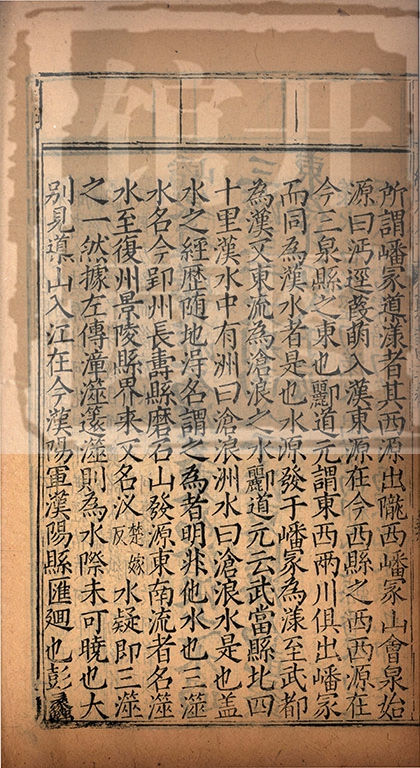 所謂嶓冢導漾者其西源出隴西嶓冢山會泉始
源曰沔逕葭萌入漢東源在今西縣之西西源在
今三泉縣之東也酈道元謂東西兩川俱出嶓冢
而同為漢水者是也水源發于嶓冢為漾至武都
為漢又東流為滄浪之水酈道元云武當縣北四
十里漢水中有洲曰滄浪洲水曰滄浪水是也盖
水之經歷随地淂名謂之為者明非他水也三澨
水名今郢州長壽縣磨石山發源東南流者名澨
水至復州景陵縣界来又名汊楚嫁反水疑即三澨
之一然據左傳漳澨薳澨則為水際未可曉也大
別見導山入江在今漢陽軍漢陽縣匯廻也彭蠡